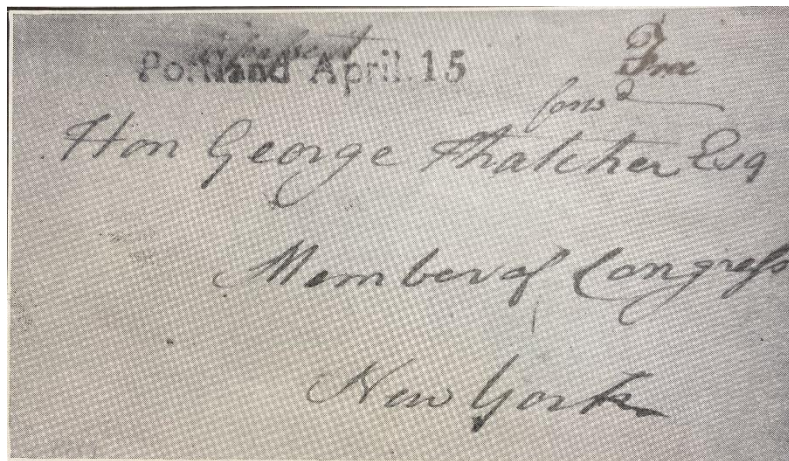 Portland April. 15
Free
Hon George Thatcher Esq
Member of Congress
New York